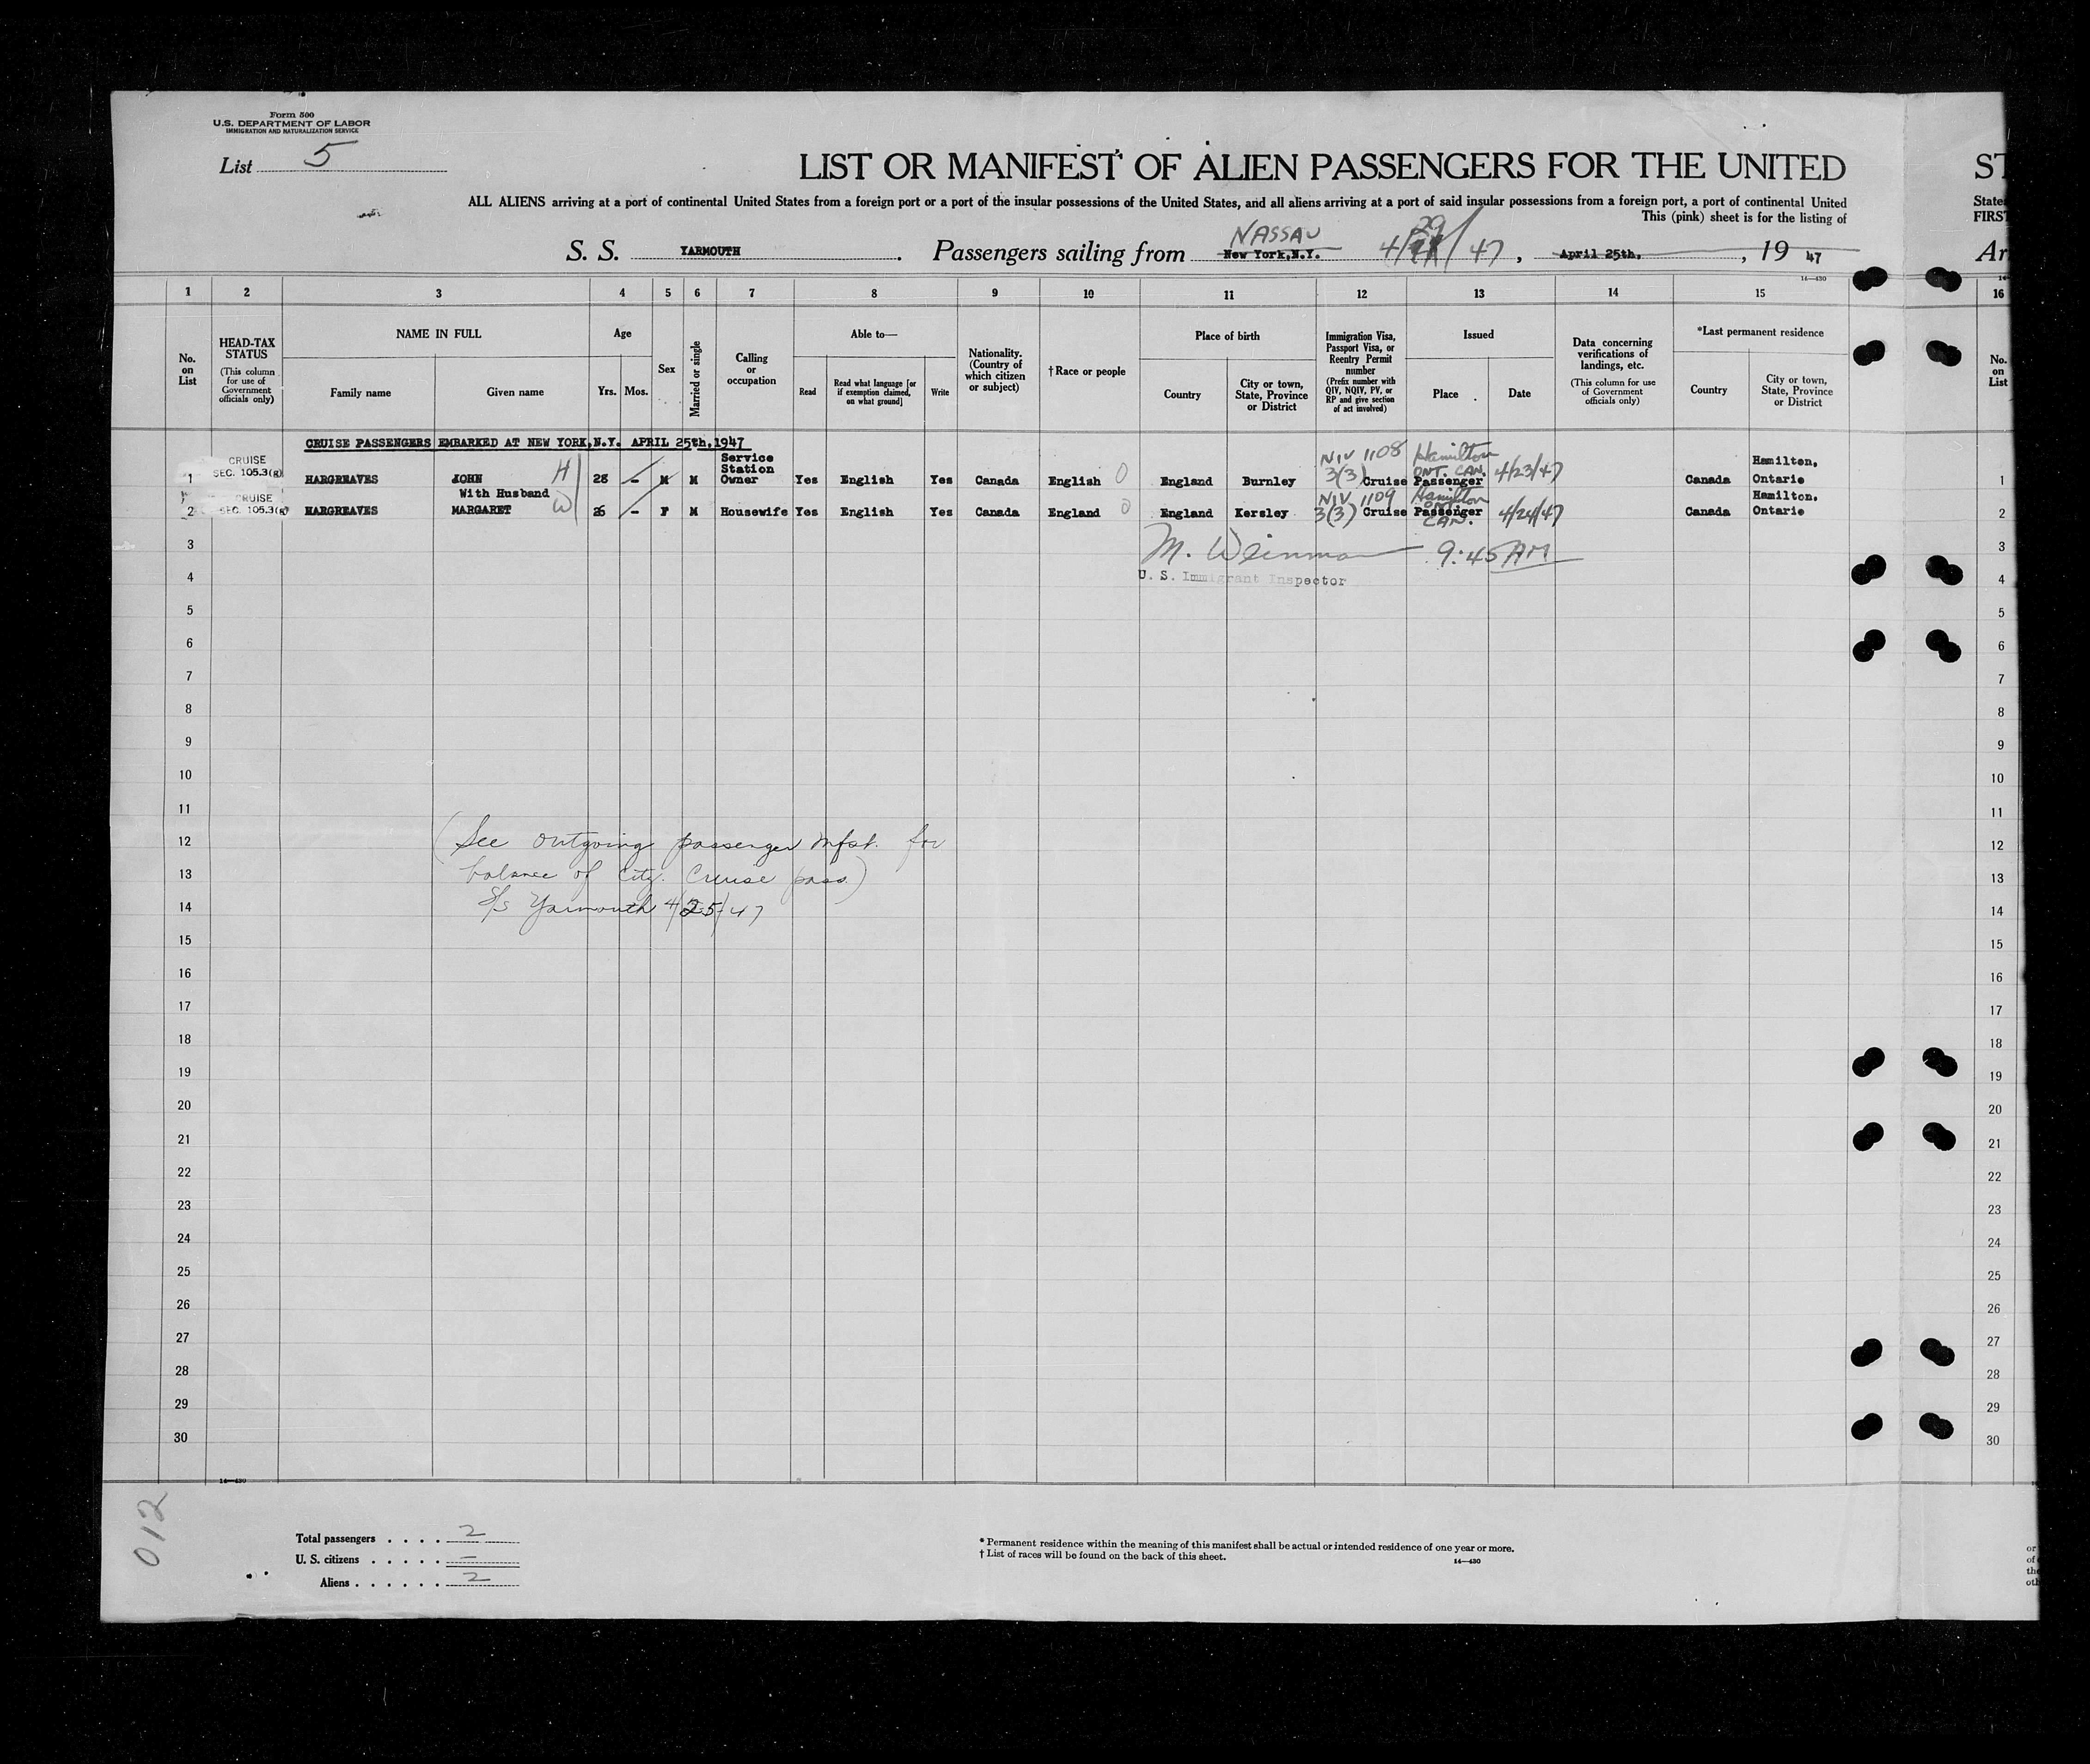 Form 500
U.S. DEPARTMENT OF LABOR
IMMIGRATION AND NATURALIZATION SERVICE
List 5
LIST OR MANIFEST OF ALIEN PASSENGERS FOR THE UNITED
ST
ALL ALIENS arriving at a port of continental United States from a foreign port or a port of the insular possessions of the United States, and all aliens arriving at a port of said insular possessions from a foreign port, a port of continental United
State
This (pink) sheet is for the listing of
FIRST
S. S. YARMOUTH. Passengers sailing from New York, N.Y. NASSAU 4/29/47, April 25th, 1947
Ar
14—430
1 2 3 4 5 6 7 8 9 10 11 12 13 14 15 16
No. on List
HEAD-TAX STATUS
(This column for use of Government officials only)
NAME IN FULL
Family name
Given name
Age
Yrs. Mos.
Sex
Married or single
Calling or occupation
Able to—
Read
Read what language [or if exemption claimed, on what ground]
Write
Nationality. (Country of which citizen or subject)
†Race or people
Place of birth
Country
City or town, State, Province or District
Immigration Visa, Passport Visa, or Reentry Permit number
(Prefix number with QIV, NQIV, PV, or RP and give section of act involved)
Issued
Place
Date
Data concerning verifications of landings, etc.
(This column for use of Government officials only)
*Last permanent residence
Country
City or town, State, Province or District
No. on List
CRUISE PASSENGERS EMBARKED AT NEW YORK, N.Y. APRIL 25th, 1947
1 CRUISE SEC. 105.3(g) HARGREAVES JOHN H 28 - M M Service Station Owner Yes English Yes Canada English 0 England Burnley NIV 1108 3(3) Cruise Passenger Hamilton ONT. CAN. 4/23/47 Canada Hamilton, Ontario 1
With Husband
2 CRUISE SEC. 105.3(g) HARGREAVES MARGARET W 26 - F M Housewife Yes English Yes Canada England 0 England Kersley NIV 1109 3(3) Cruise Passenger Hamilton ONT. CAN. 4/24/47 Canada Hamilton, Ontario 2
3 M. Weinman 9:45 AM 3
4 U. S. Immigrant Inspector 4
5 5
6 6
7 7
8 8
9 9
10 10
11 11
12 (See outgoing passenger mfst. for 12
13 balance of city. Cruise pass.) 13
14 S/s Yarmouth 4/25/47 14
15 15
16 16
17 17
18 18
19 19
20 20
21 21
22 22
23 23
24 24
25 25
26 26
27 27
28 28
29 29
30 30
14—430
012
Total passengers . . . . 2
U. S. citizens . . . . . —
Aliens . . . . . . 2
* Permanent residence within the meaning of this manifest shall be actual or intended residence of one year or more.
† List of races will be found on the back of this sheet.
14—430
or
of
the
oth